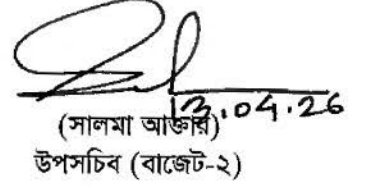 13.04.26
(সালমা আক্তার)
উপসচিব (বাজেট-২)